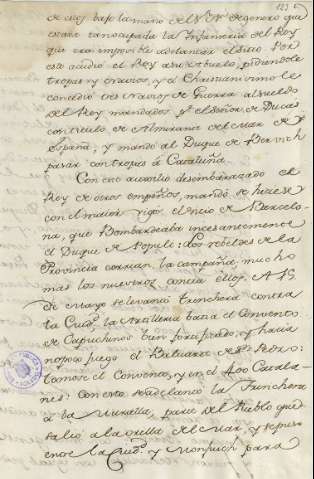 de
estava tan ocupada la Infanteria del Rey
que era imposible adelantar el sitio. Por
esto acudió el Rey a su Abuelo, pidiendole
tropas y navios, y el Christianisimo le
concedió tres navios de Guerra al sueldo
del Rey mandados pr. el Señor de Ducas
con titulo de Almirante del Mar de
España, y mandó al Duque de Bervich
pasar con tropas á Cataluña.
Con este auxilio desembarazado el
Rey de otros empeños, mandó se hiciese
con el maior vigor el sitio de Barcelo-
na, que Bombardeaba incesantemente
el Duque de Populi: los reveldes de la
Provincia corrian la campaña, mucho
mas los nuestros contra ellos. A
de Mayo se levantó trinchera contra
la Ciudd. la Artilleria batia el Convento
de Capuchinos bien fortificado, y hacia
no poco fuego el Baluarte de Sn. Pedro:
tomose el Convento, y en el 400 Catala-
nes: Con esto señalando la Trinchera
a la Muralla, parte del Pueblo que
salió a la orilla del Mar, y
entre la Ciudd. y Monjuich para